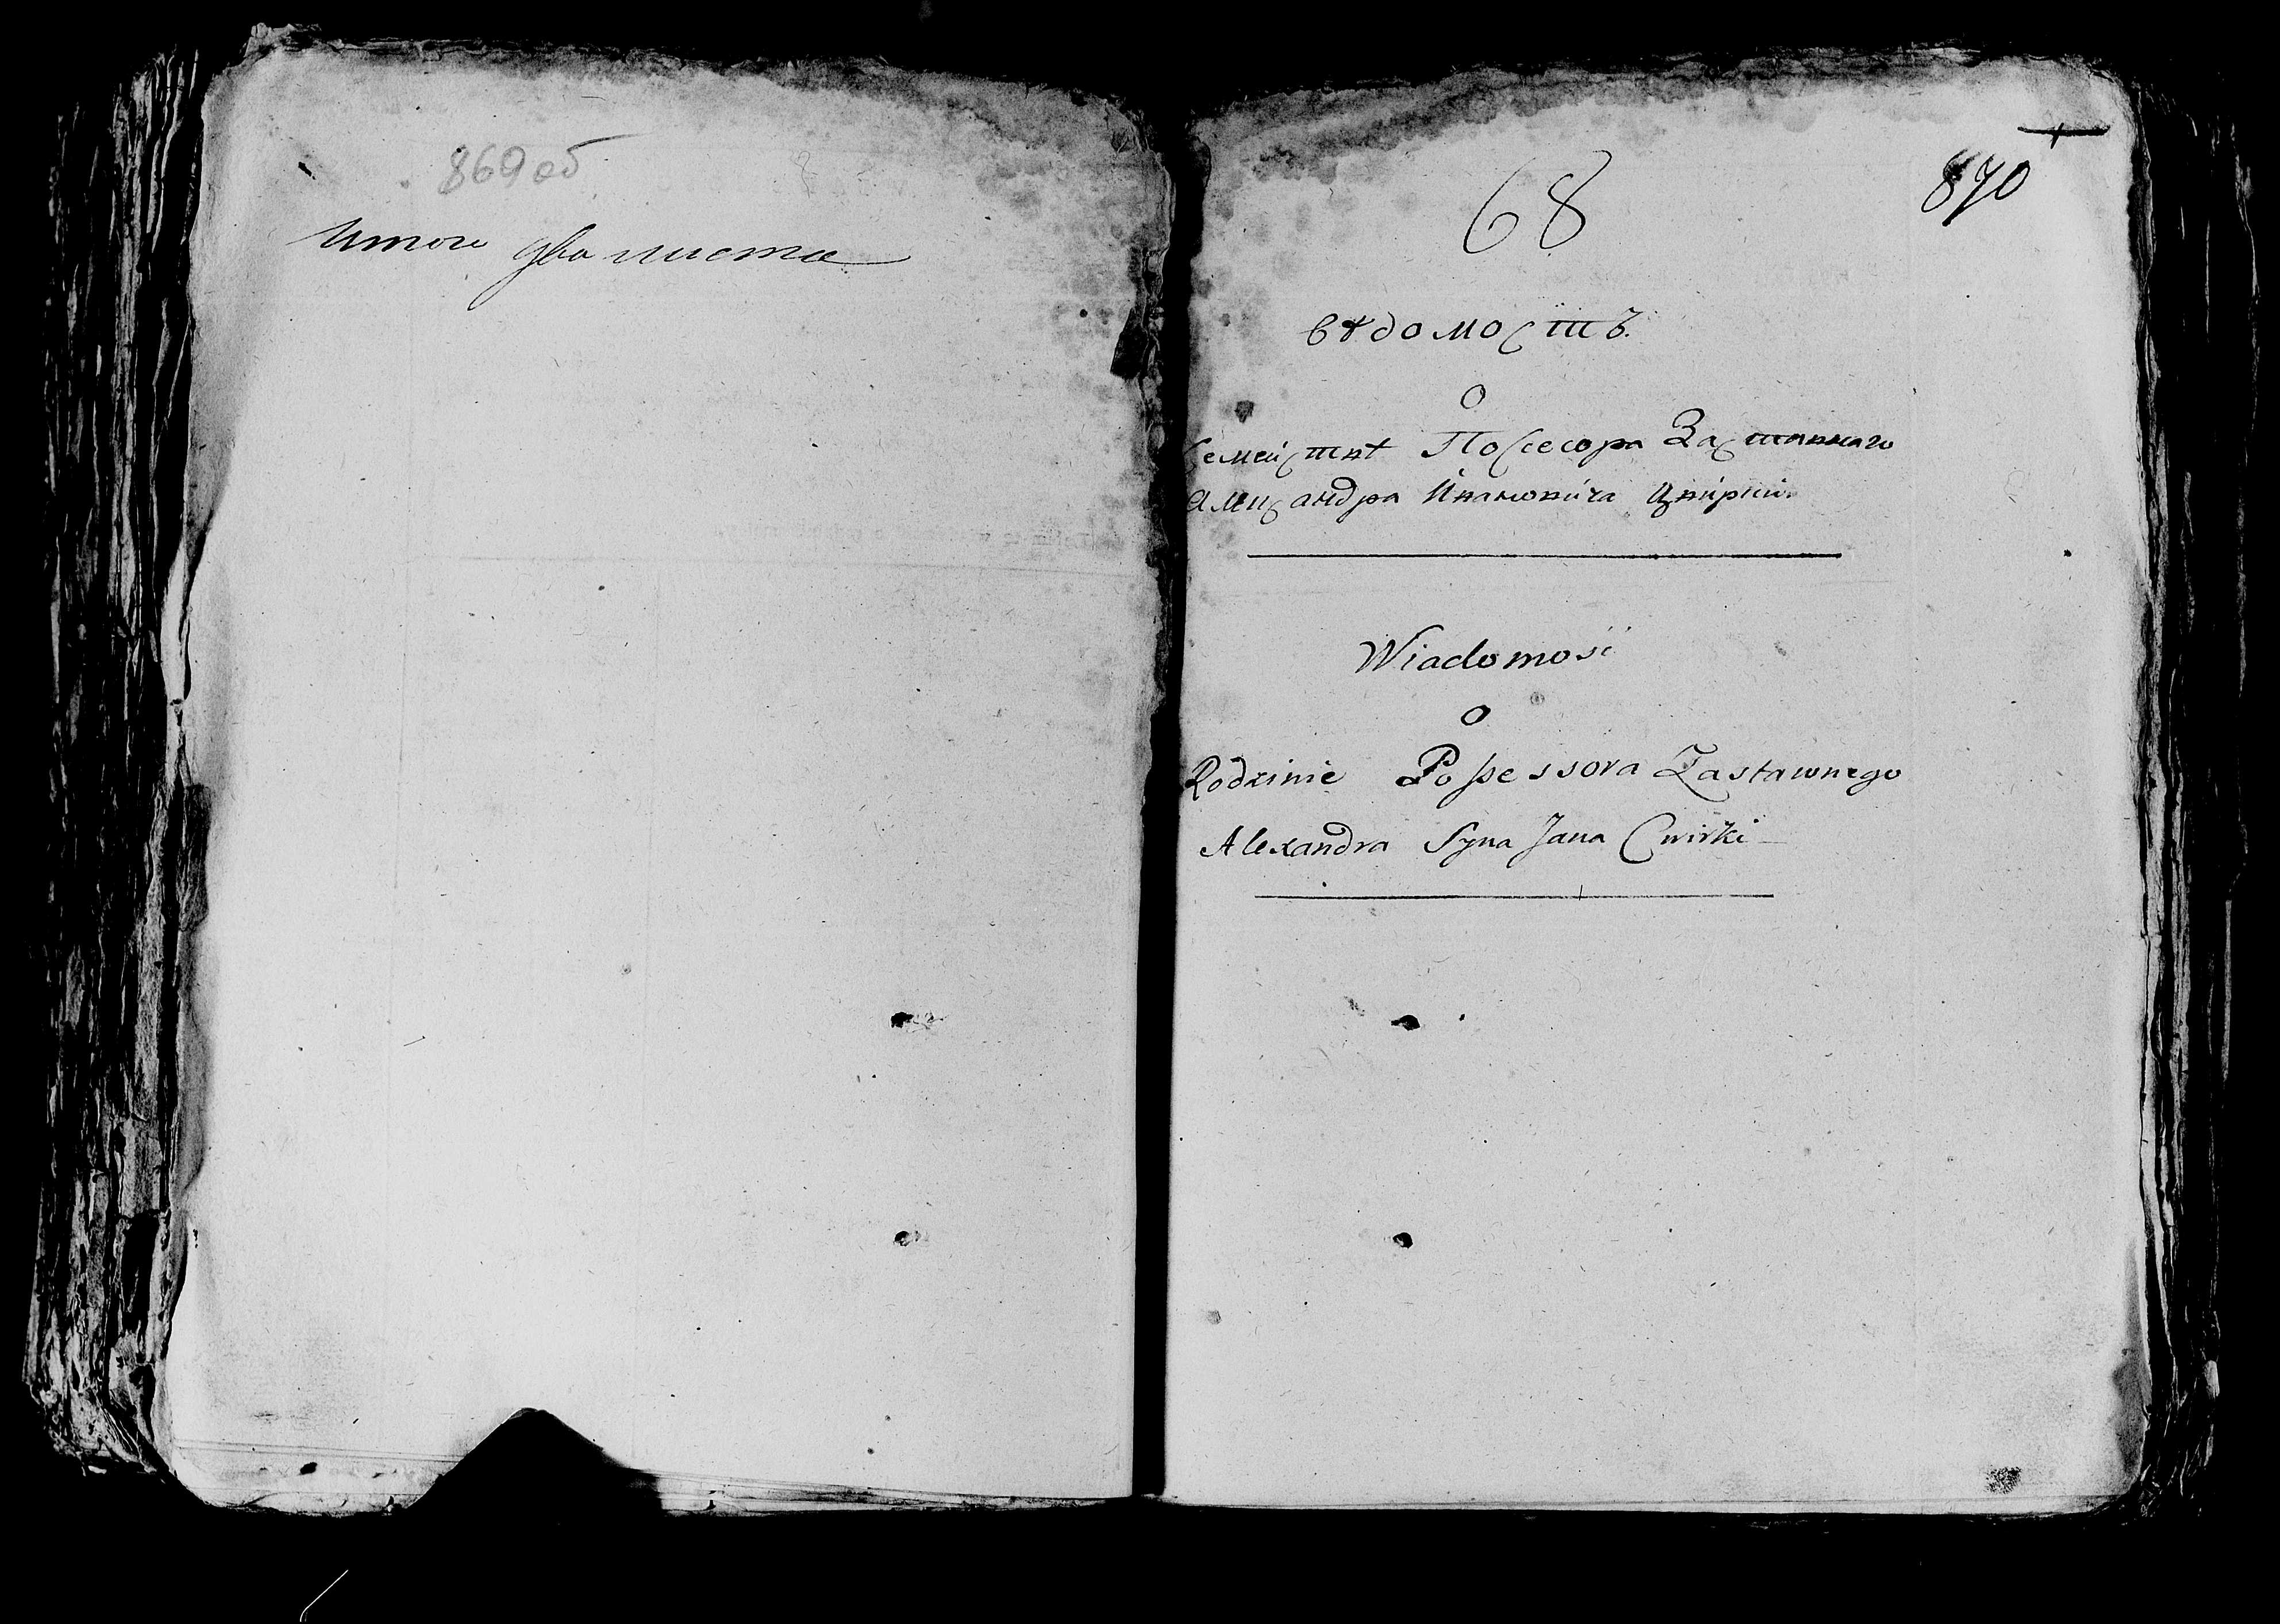 869 об
Итого два листа
870
68
Вѣдомость.
О
Семействѣ Поссесора Заставнаго
Аликсандра Ивановича Цвирки.
Wiadomość
O
Rodzinie Possessora Zastawnego
Alexandra Syna Jana Cwirki